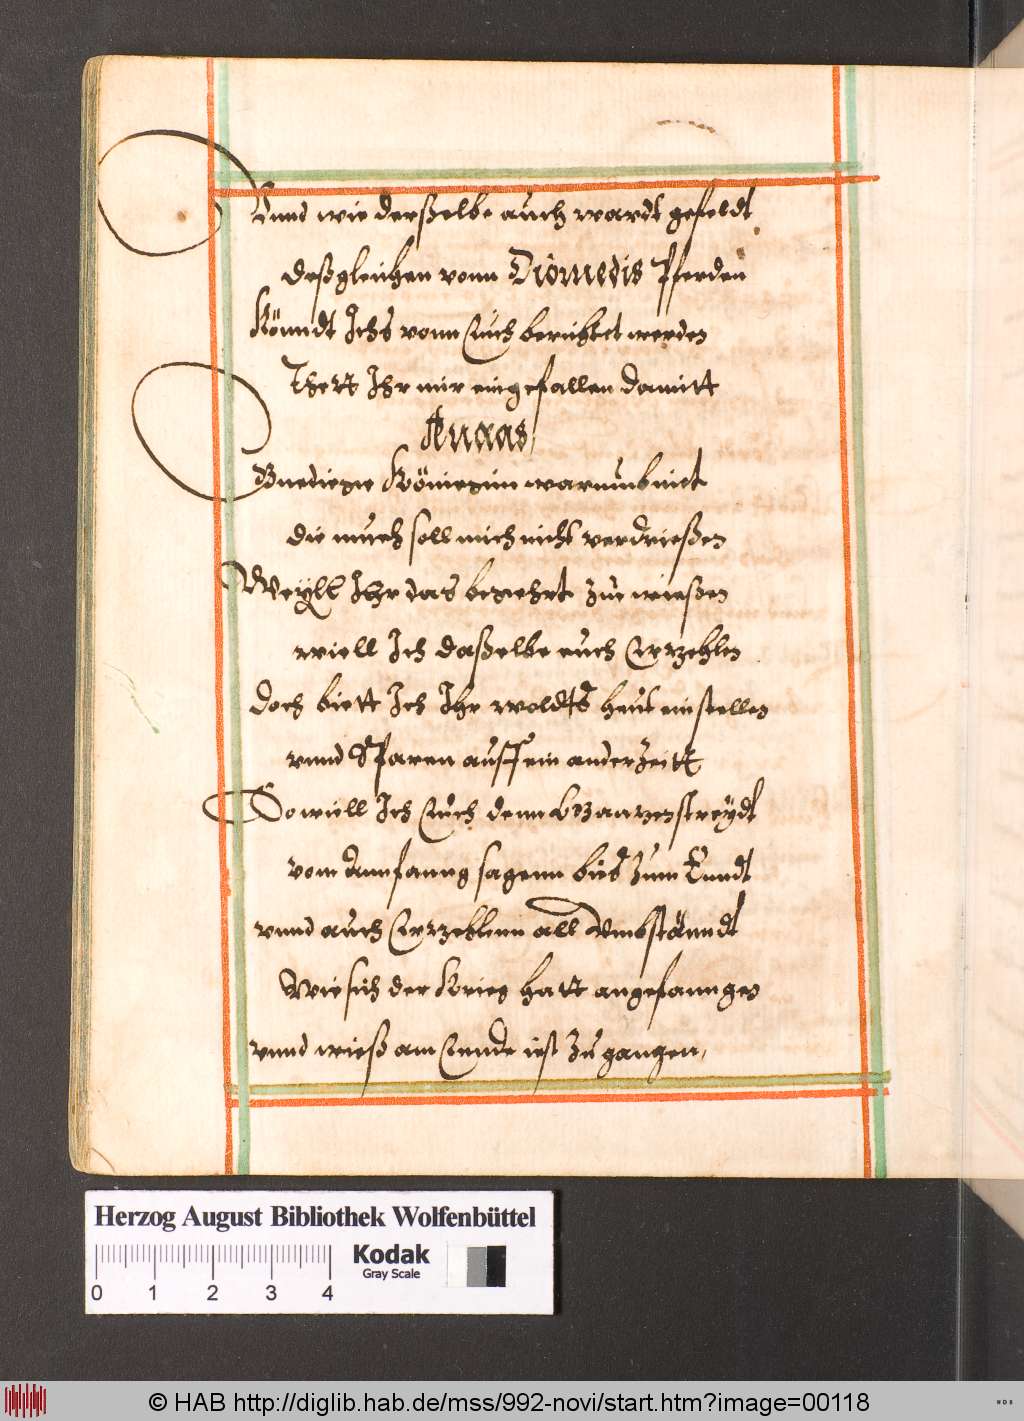 Vnnd wie derßelbe auch wardt gefeldt
deßgleichen vonn Diomedis Pferden
Köndt Ichs vonn Euch berichtet werden
Thett Ihr mir ein gefallen damitt
Æneas
Gnedigge Köniegin warumb nict
die mueh soll mich nicht verdrießen
Weyll Ihr das begehrt zue wießen
wiell Ich daßelbe euch Erzehlen
doch biett Ich Ihr woldts heut einstellen
vnnd Sparen auff ein ander Zeitt
So will Ich Euch denn ganzen streydt
vom Annfanng sagenn bies zum Enndt
vnnd auch Erzehlenn all Vmbständt
Wie sich der Krieg hatt angefanngen
vnnd wieß am Ennde ist zu gangen,
Herzog August Bibliothek Wolfenbüttel
Kodak
Gray Scale
0 1 2 3 4
© HAB http://diglib.hab.de/mss/992-novi/start.htm?image=00118